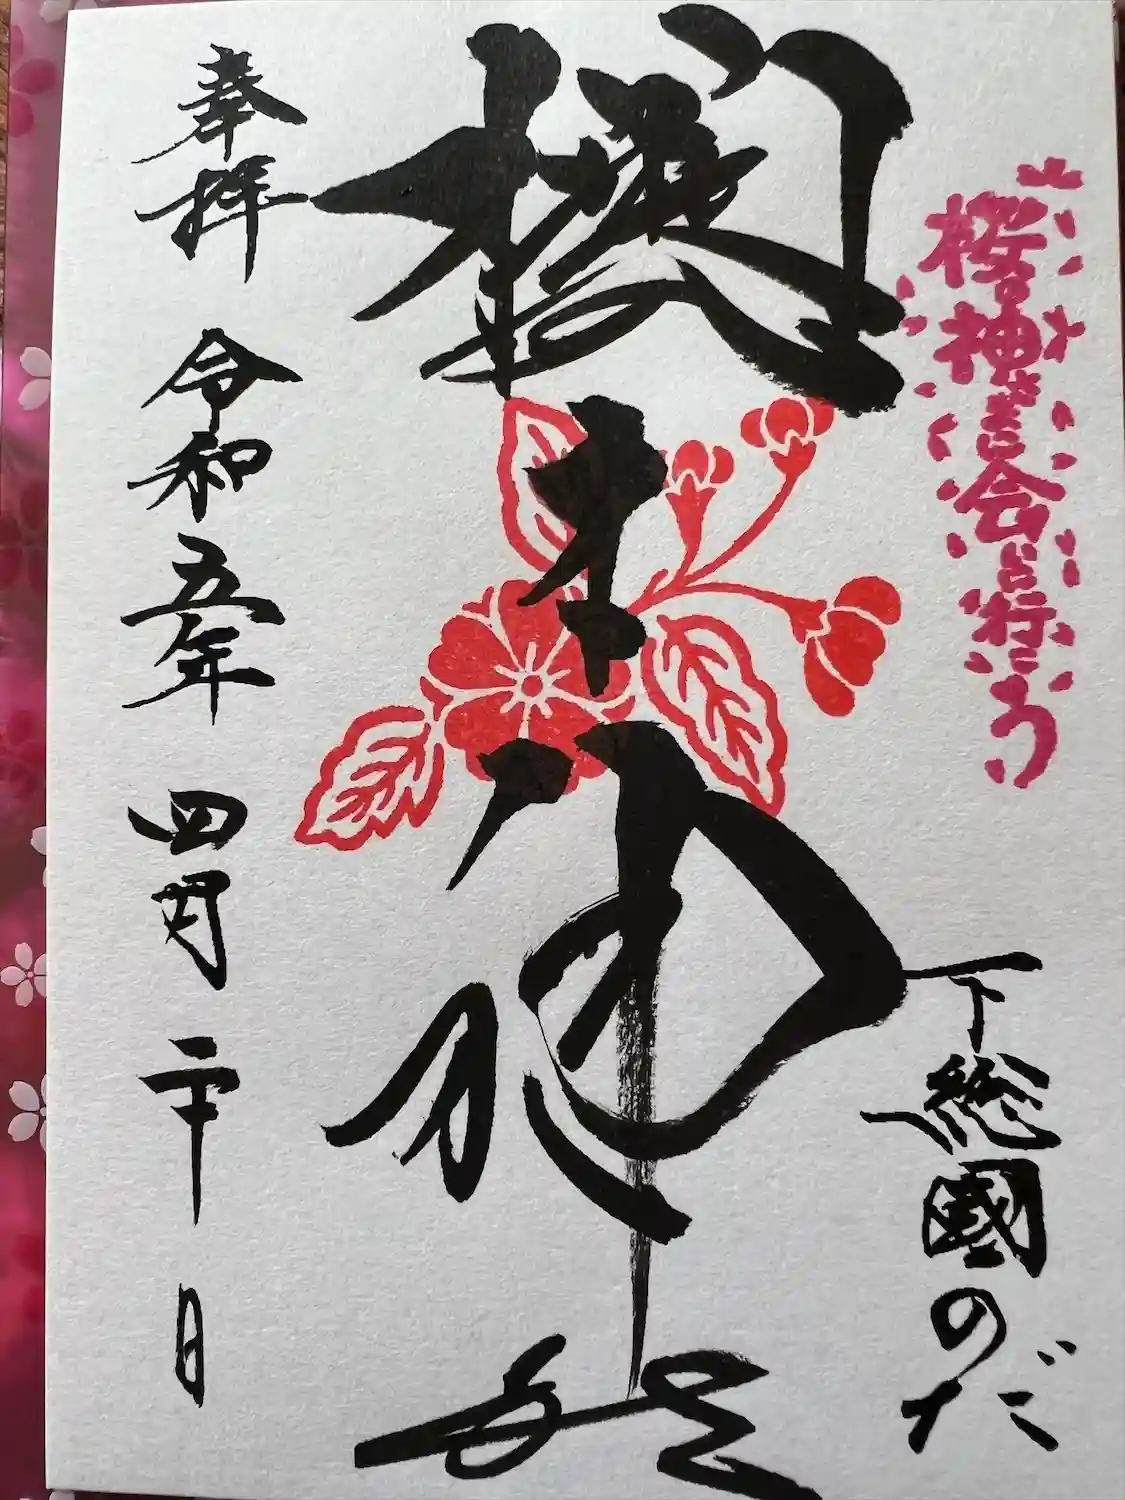 桜の神さまに会いに行こう
下総國のだ
櫻木神社
奉拝 令和五年 四月 二十日